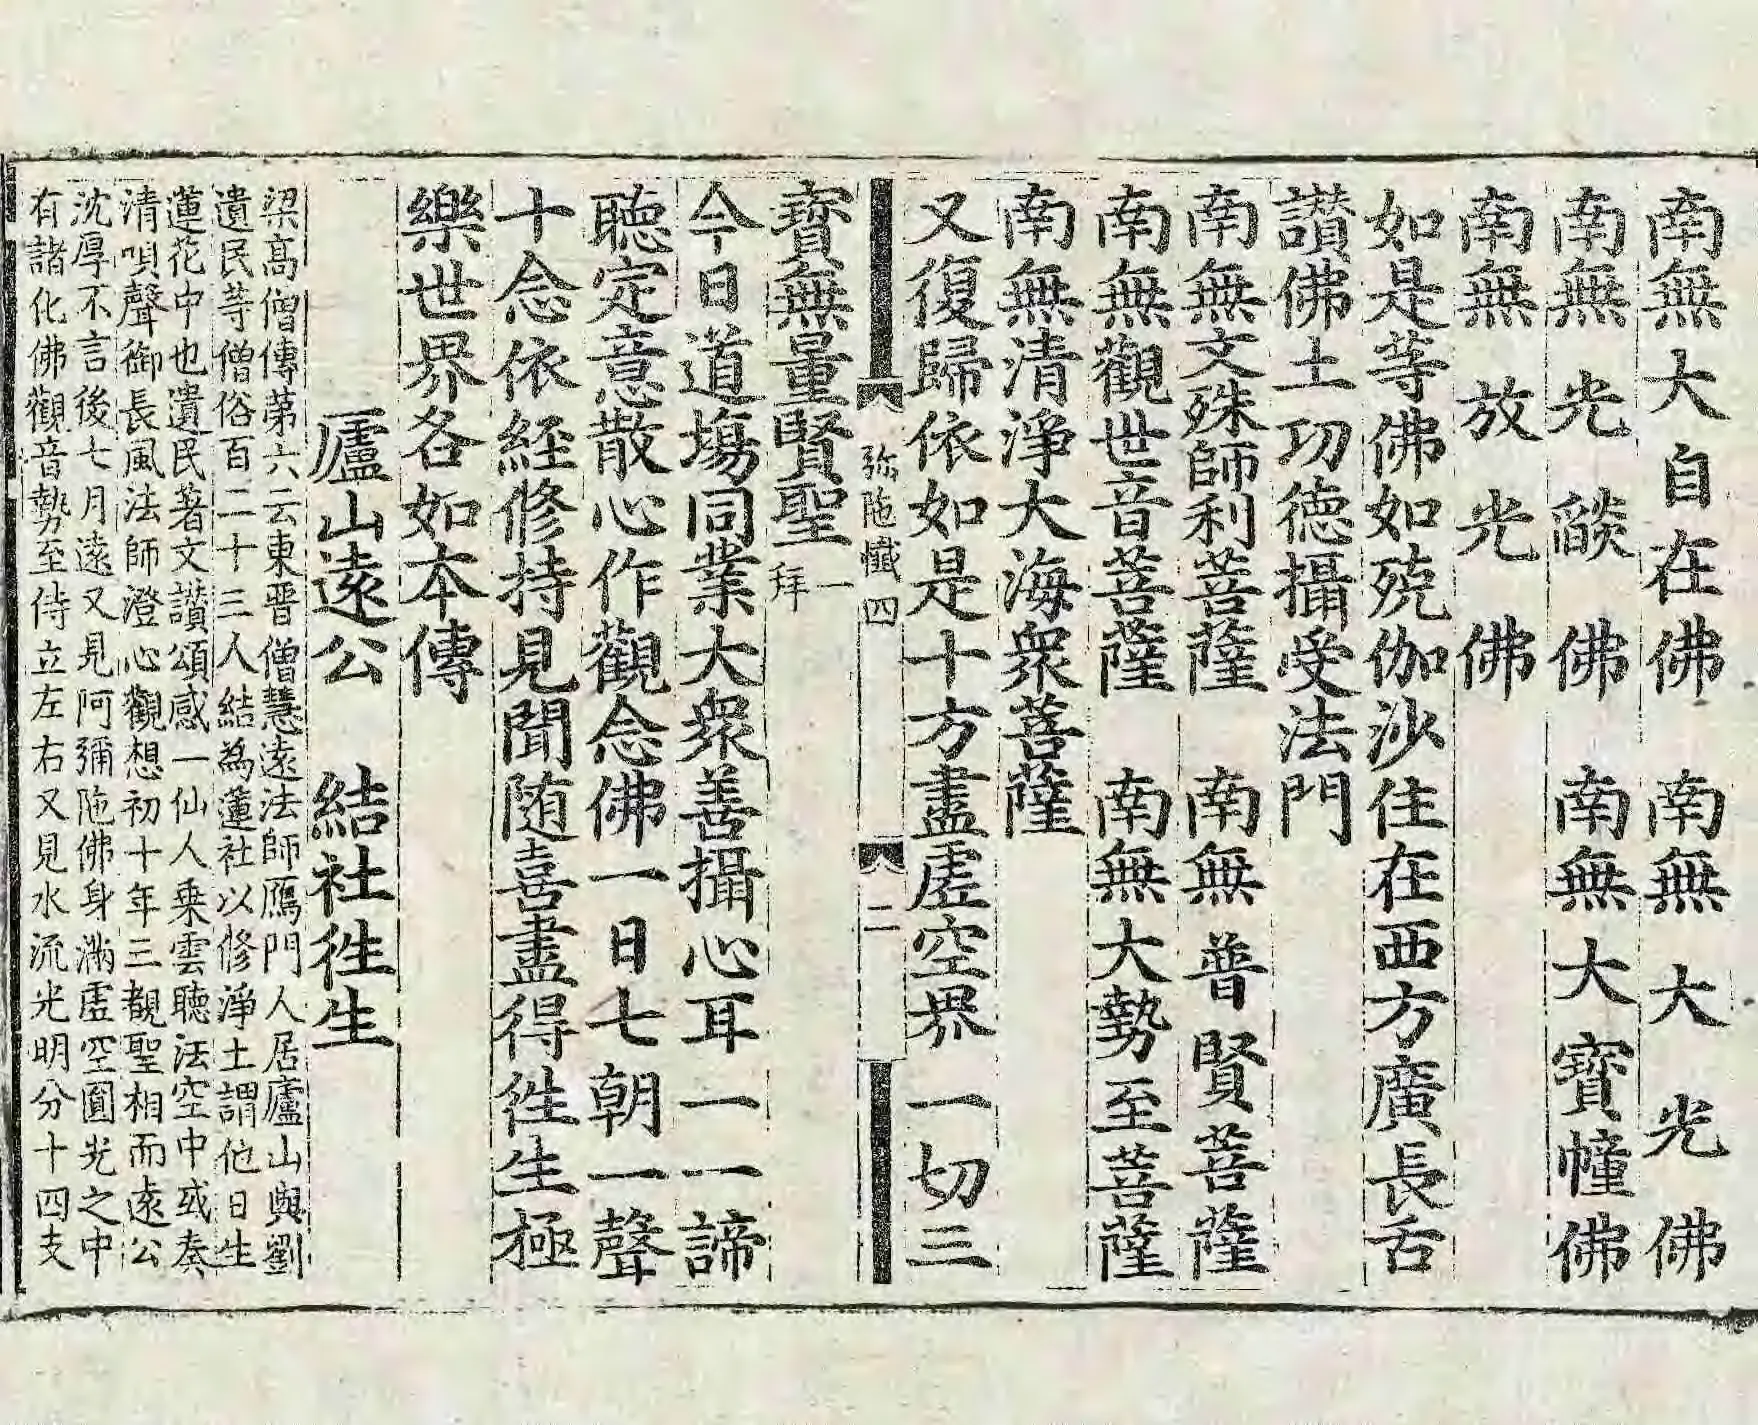 南無大自在佛　南無大光佛
南無光燄佛　南無大寶幢佛
南無放光佛
如是等佛如殑伽沙住在西方廣長舌
讃佛土功德攝受法門
南無文殊師利菩薩　南無普賢菩薩
南無觀世音菩薩　南無大勢至菩薩
南無清淨大海衆菩薩
又復歸依如是十方盡虛空界一切三
弥陁懺四　二
寶無量賢聖一拜
今日道場同業大衆善攝心耳一一諦
聽定意散心作觀念佛一日七朝一聲
十念依経修持見聞随喜盡得徃生極
樂世界各如本傳
廬山遠公　結社徃生
梁髙僧傳第六云東晋僧慧遠法師鴈門人居廬山與劉
遺民等僧俗百二十三人結為蓮社以修淨土謂他日生
蓮花中也遺民著文讃頌感一仙人乗雲聴法空中或奏
清唄聲御長風法師澄心觀想初十年三覩聖相而遠公
沈厚不言後七月遠又見阿彌陁佛身滿虛空圓光之中
有諸化佛觀音勢至侍立左右又見水流光明分十四支